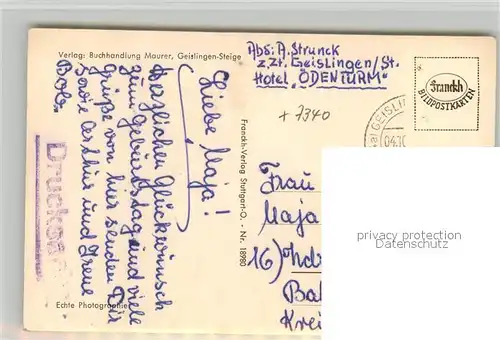 Verlag: Buchhandlung Maurer, Geislingen-Steige
Abs: A. Strunck
z.Zt. Geislingen/St.
Hotel „ÖDENTURM"
+ 7340
Franckh
BILDPOSTKARTEN
GEISLIN
Liebe Maja!
Herzlichen Glückwunsch
zum Geburtstag und viele
Grüße von hier senden Dir
sowie Arthur und Irene
Bob.
Drucksa
Franckh-Verlag Stuttgart-O. - Nr. 18980
Frau
Maja
16) Ohdr
Ba
Krei
Echte Photographie
privacy protection
Datenschutz